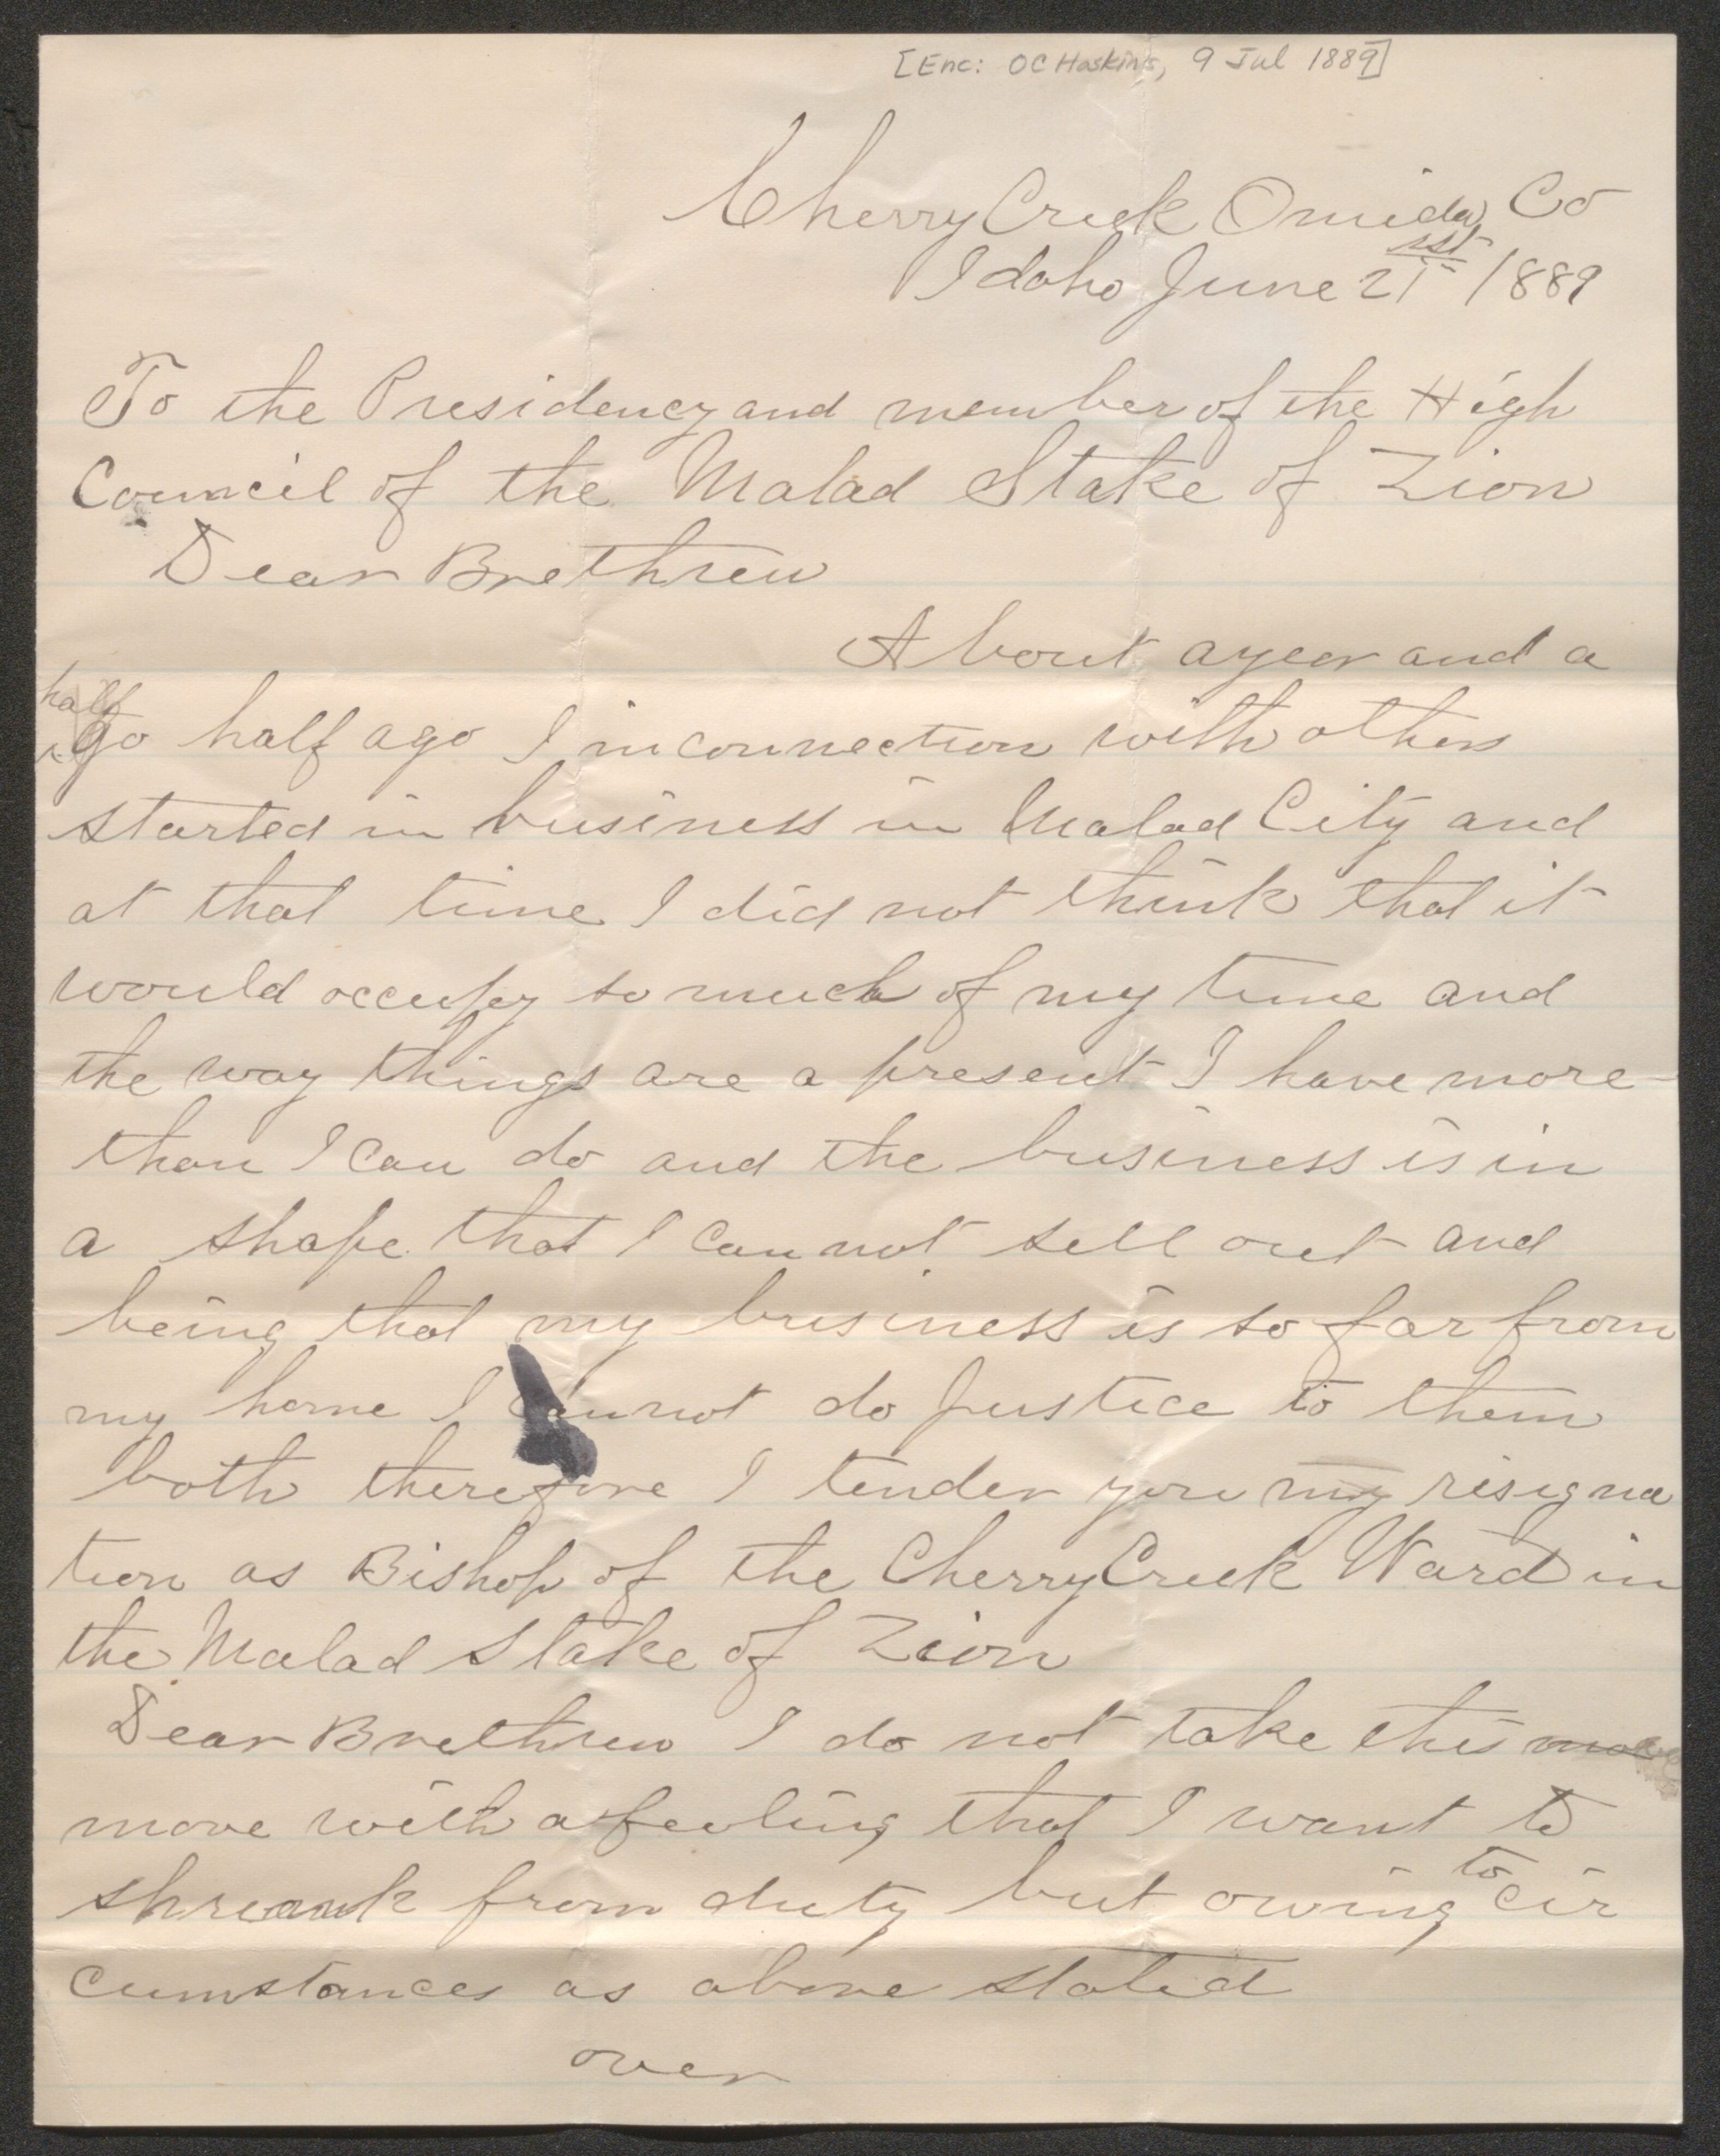 [Enc: OC Haskins, 9 Jul 1889]
Cherry Creek Onieda Co
Idaho June 21st 1889
To the Presidency and member of the High
Council of the Malad Stake of Zion
Dear Brethren
About a year and a
half
go half ago I in connection with others
started in business in Malad City and
at that time I did not think that it
would occupy so much of my time and
the way things are a present I have more
than I can do and the business is in
a shape that I can not sell out and
being that my business is so far from
my home I cannot do justice to them
both therefore I tender you my risigna
tion as Bishop of the Cherry Creek Ward in
the Malad Stake of Zion
Dear Brethren I do not take this
move with a feeling that I want to
from duty but owing to cir
cumstances as above stated
over